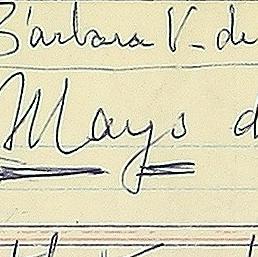 Bárbara V. de
Mayo d